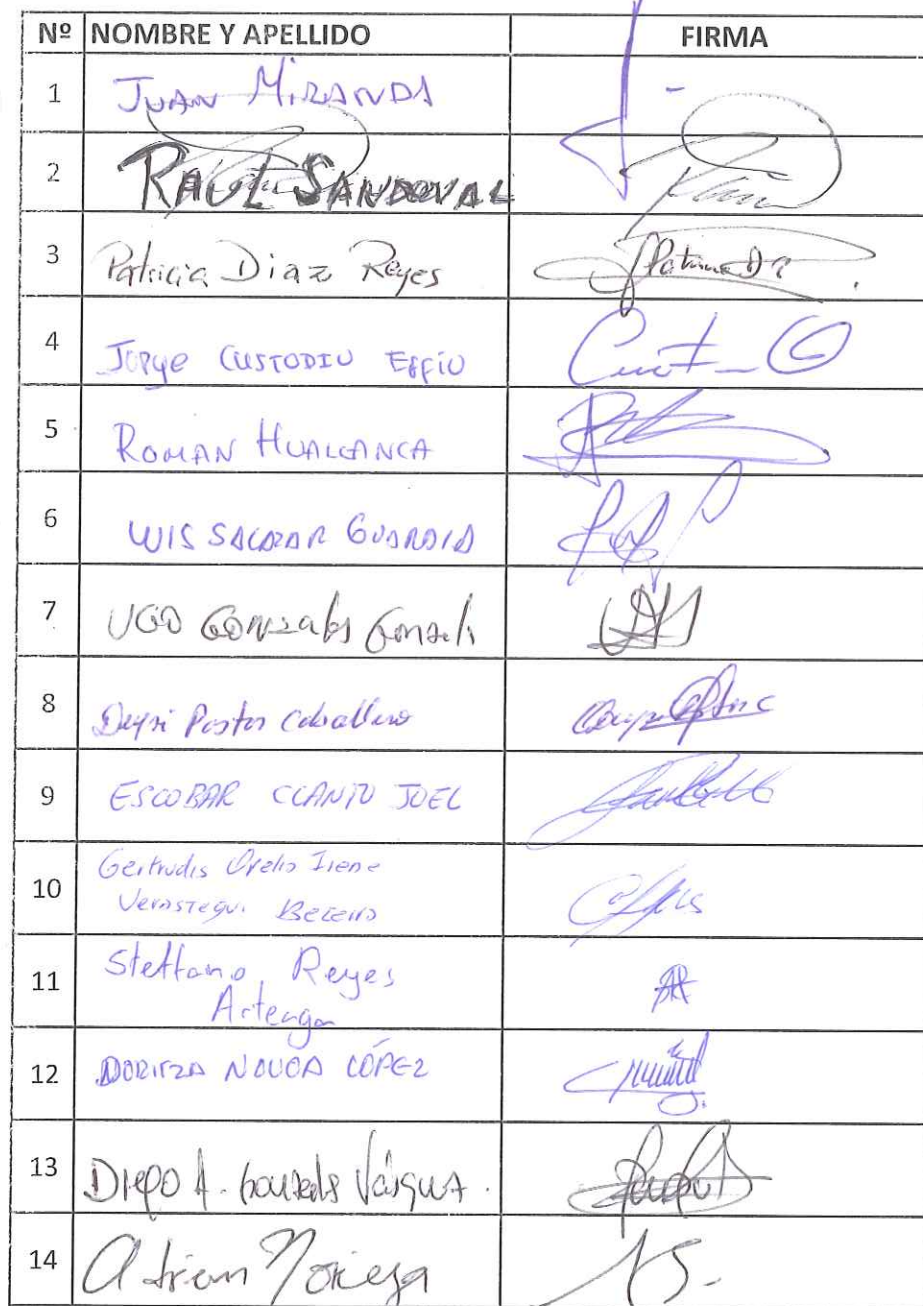 Nº NOMBRE Y APELLIDO FIRMA
1 JUAN MIRANDA
2 RAUL SANDOVAL
3 Patricia Diaz Reyes
4 Jorge CUSTODIO EFFIO
5 ROMAN HUALLANCA
6 LUIS SALAZAR GUARDIA
7 UGO GONzales Gonzales
8 Deysi Pastor Caballero
9 ESCOBAR CCANTO JOEL
10 Gertrudis Ofelia Irene
Verastegui Becerra
11 Steffano Reyes
Arteaga
12 DORITZA NOVOA LÓPEZ
13 DIEGO A. Gonzales Vásquez.
14 Adrian Noriega